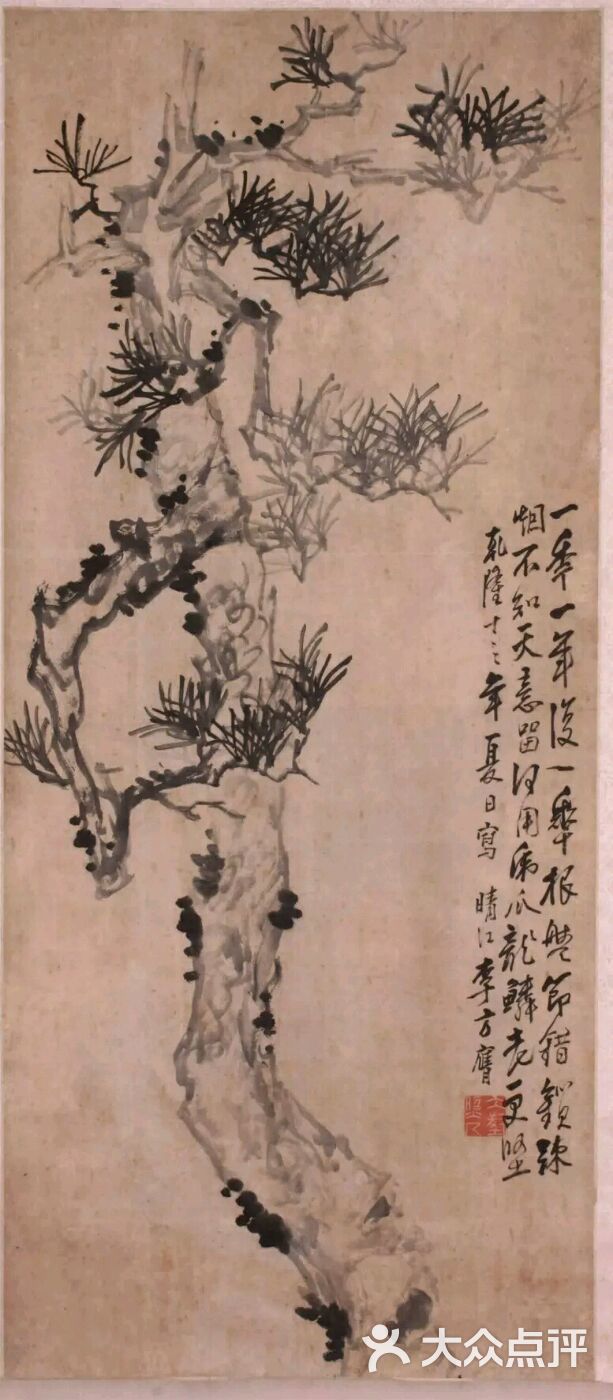 一年一年復一年根盤節錯鎖疎
烟不知天意留何用虎爪龍鱗老更堅
乾隆十三年夏日寫 晴江李方膺
大众点评